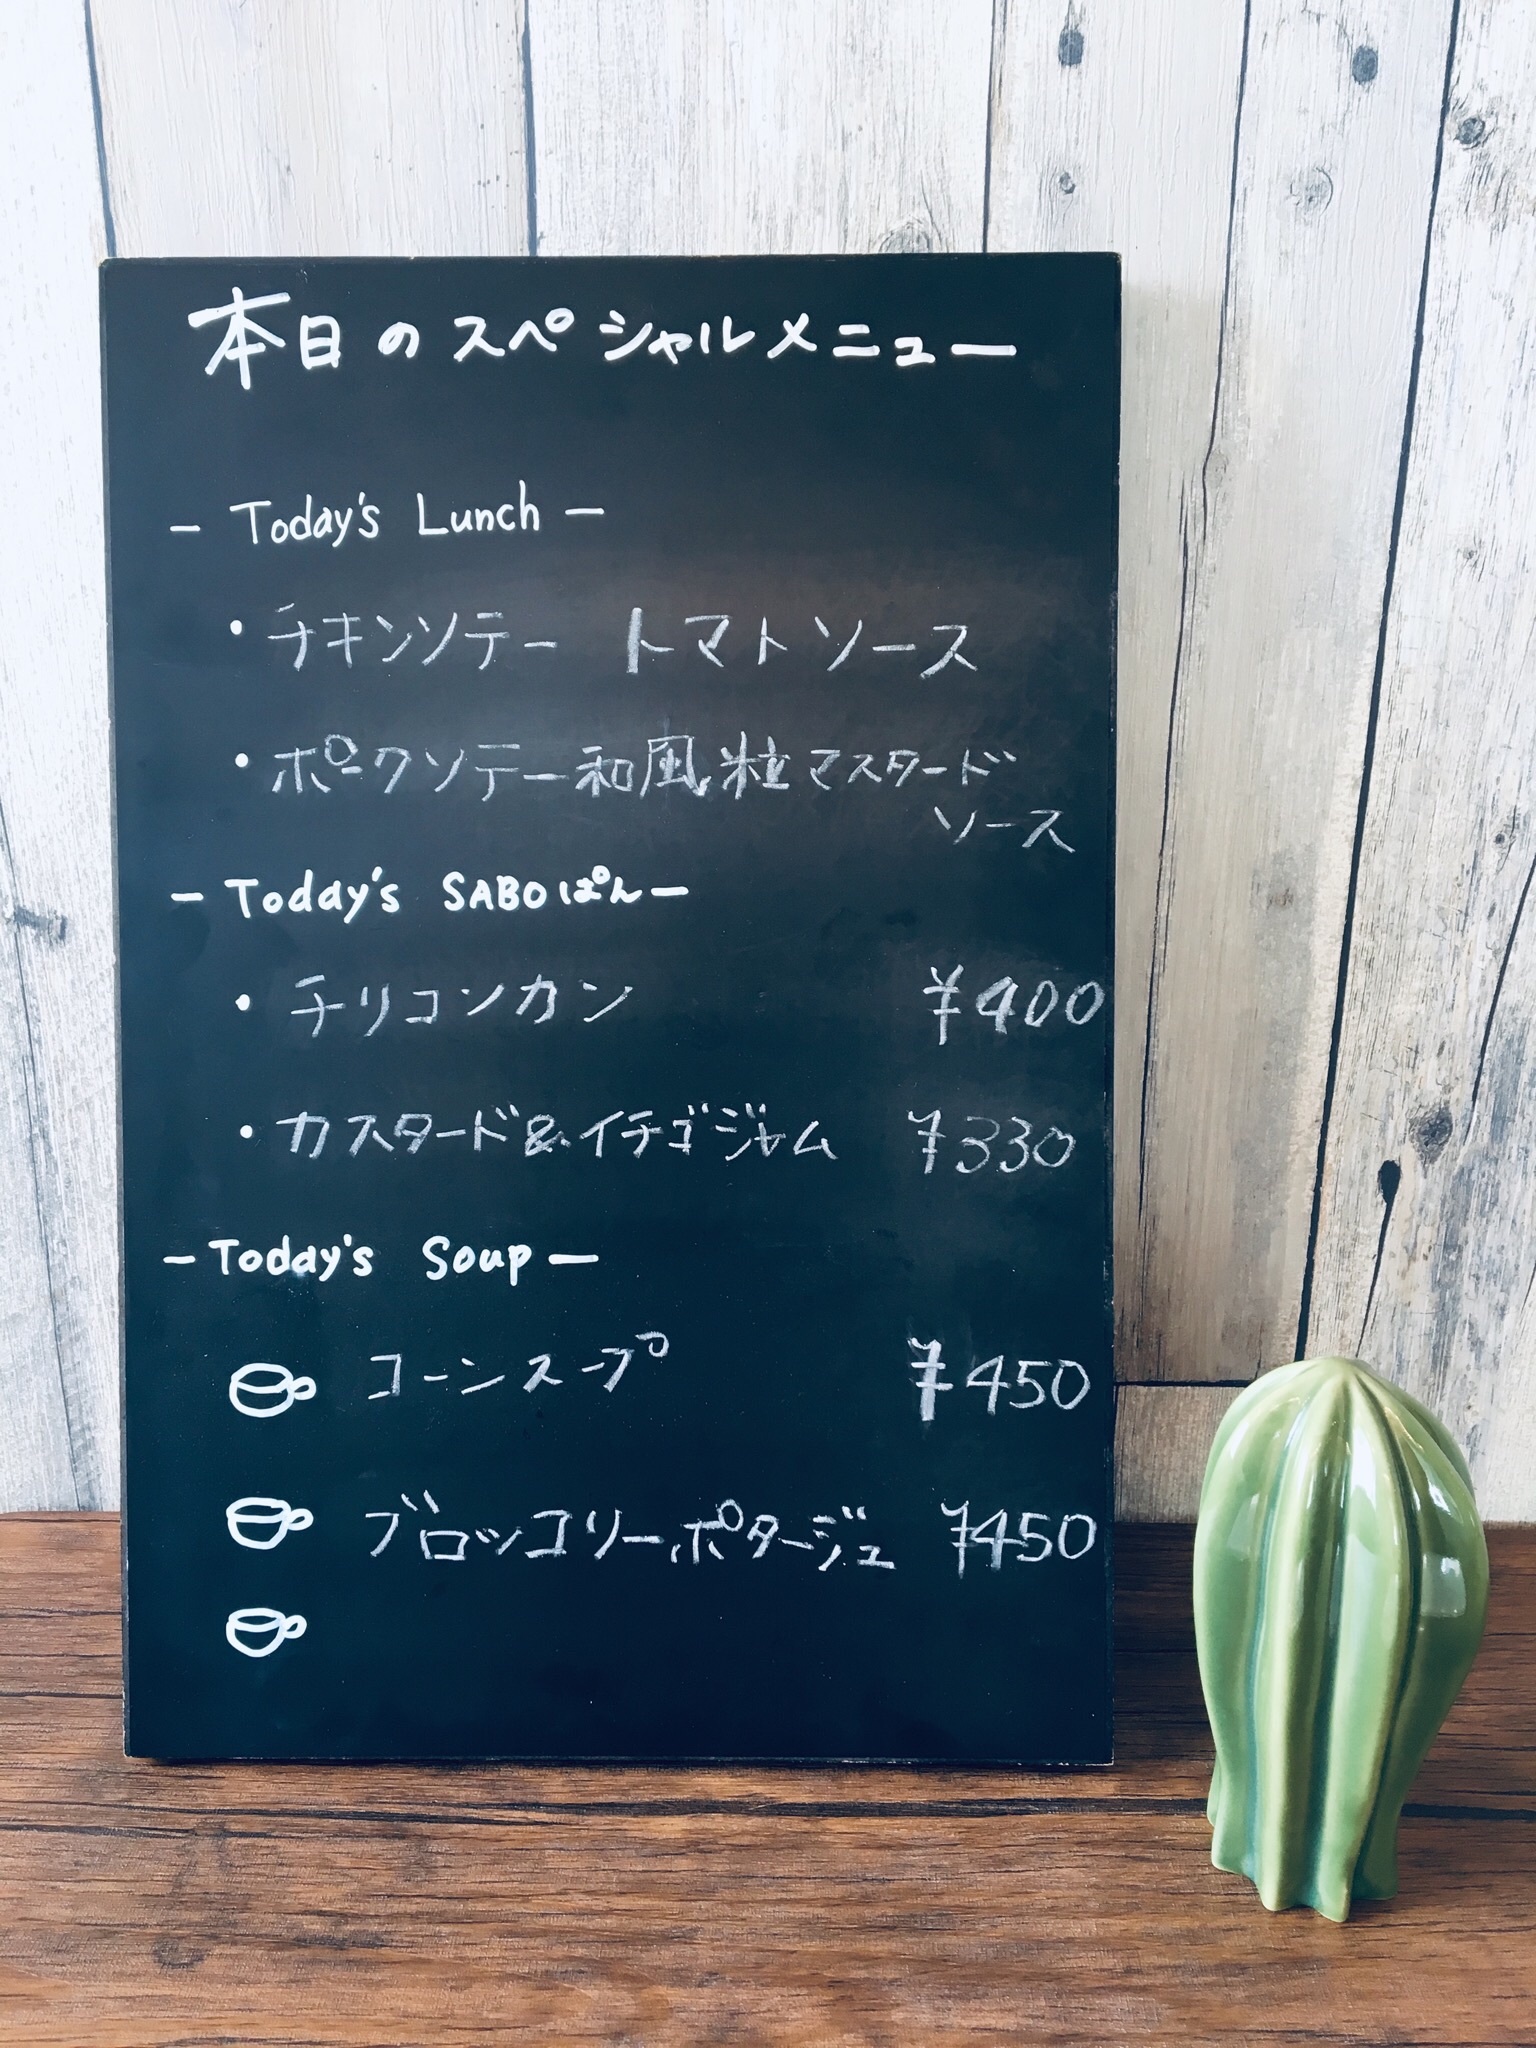 本日のスペシャルメニュー
- Today's Lunch -
・チキンソテー トマトソース
・ポークソテー和風粒マスタード
ソース
- Today's SABOぱん -
・チリコンカン ¥400
・カスタード&イチゴジャム ¥330
- Today's Soup -
コーンスープ ¥450
ブロッコリーポタージュ ¥450